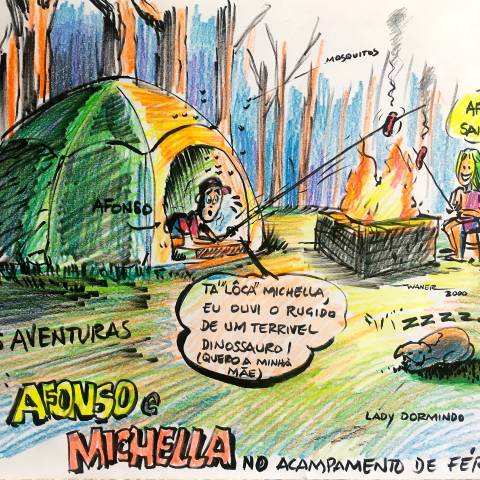 MOSQUITOS
AF
SAI
AFONSO
TA "LÔCA" MICHELLA,
EU OUVI O RUGIDO
DE UM TERRIVEL
DINOSSAURO!
(QUERO A MINHA
MÃE)
WANER
2000
S AVENTURAS
ZZZZZ
AFONSO e
MICHELLA
LADY DORMINDO
NO ACAMPAMENTO DE FÉR